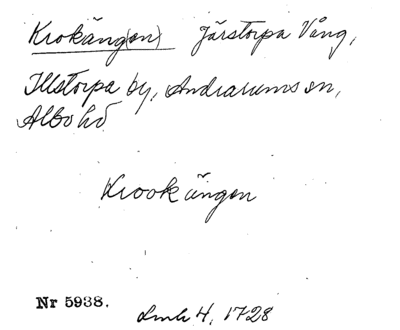 Krokäng(en) Järstorpa Vång,
Illstorpa by, Andrarums sn,
Albo hd
Krookängen
Nr 5938.
Lmh 4, 1728